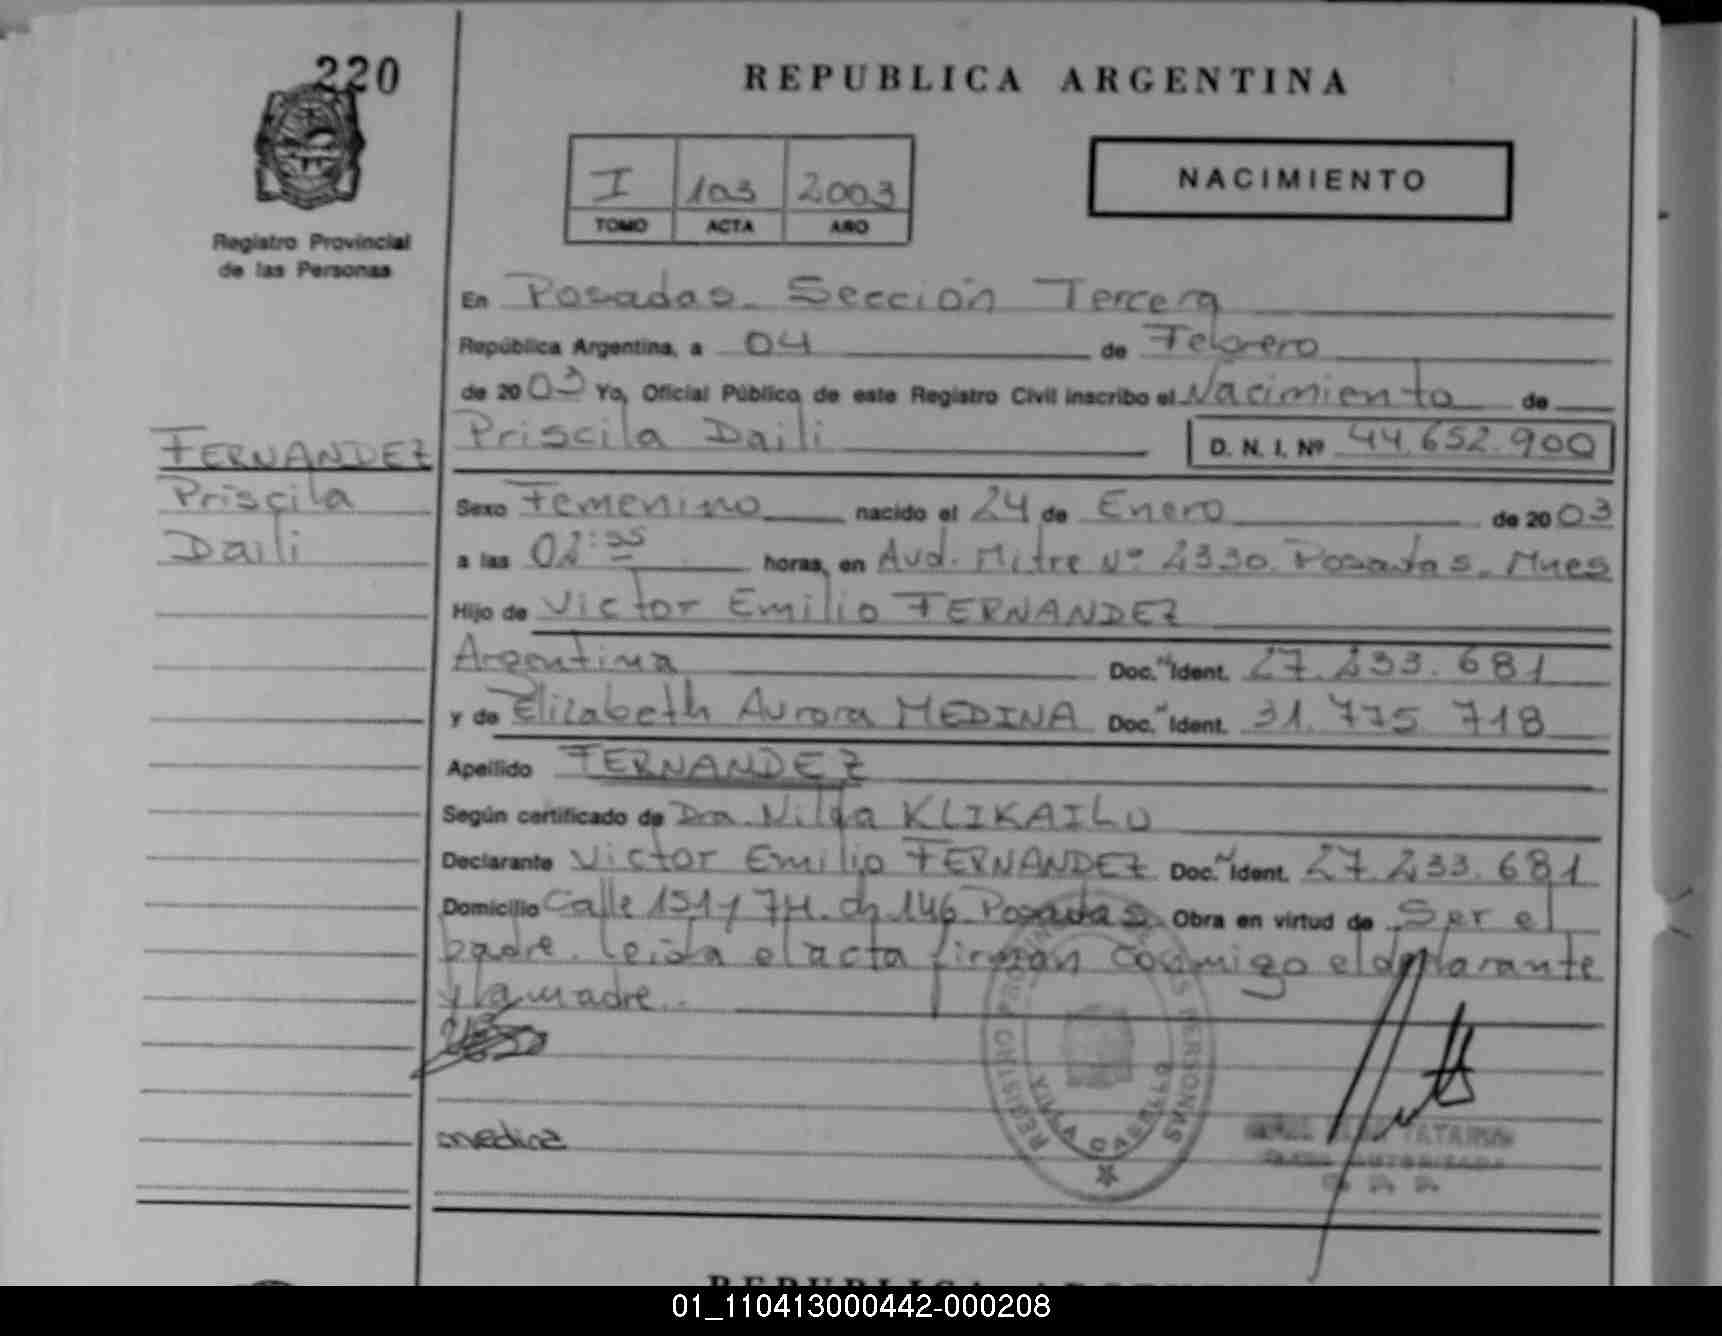 220
REPUBLICA ARGENTINA
I 103 2003
TOMO ACTA AÑO
NACIMIENTO
Registro Provincial
de las Personas
En Posadas. Sección Tercera
República Argentina, a 04 de Febrero
de 2003 Yo, Oficial Público de este Registro Civil inscribo el Nacimiento de
Priscila Daili D. N. I. Nº 44.652.900
FERNANDEZ
Priscila
Daili
Sexo Femenino nacido el 24 de Enero de 2003
a las 02:55 horas, en Avd. Mitre Nº 2330. Posadas. Mnes
Hijo de Victor Emilio FERNANDEZ
Argentina Doc. Ident. 27.233.681
y de Elizabeth Aurora MEDINA Doc. Ident. 31.775.718
Apellido FERNANDEZ
Según certificado de Dra. Nilda KLIKAILO
Declarante Victor Emilio FERNANDEZ Doc. Ident. 27.233.681
Domicilio Calle 151 y 74. ch 146 Posadas Obra en virtud de Ser el
padre. leida el acta firman conmigo el declarante
y la madre..
medina
REGISTRO PERSONAS
VILLA CABELLO
REPUBLICA
01_110413000442-000208